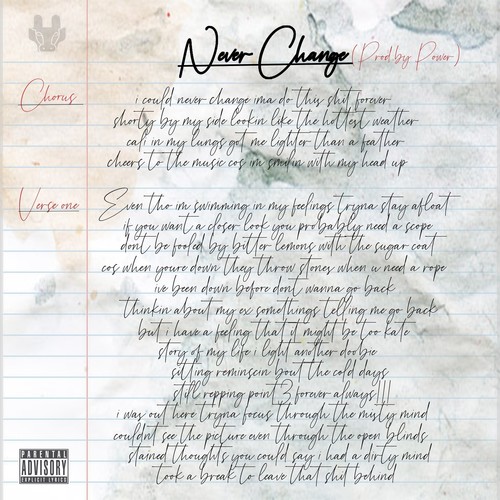 Never Change (Prod by Power)
Chorus
i could never change ima do this shit forever
shorty by my side lookin like the hottest weather
cali in my lungs got me lighter than a feather
cheers to the music cos im smilin with my head up
Verse one
Even tho im swimming in my feelings tryna stay afloat
if you want a closer look you probably need a scope
dont be fooled by bitter lemons with the sugar coat
cos when youre down they throw stones when u need a rope
ive been down before dont wanna go back
thinkin about my ex somethings telling me go back
but i have a feeling that it might be too kate
story of my life i light another doobie
sitting reminscin bout the cold days
still repping point3 forever always||||
i was out here tryna focus through the misty mind
couldnt see the picture even through the open blinds
stained thoughts you could say i had a dirty mind
took a break to leave that shit behind
PARENTAL
ADVISORY
EXPLICIT LYRICS